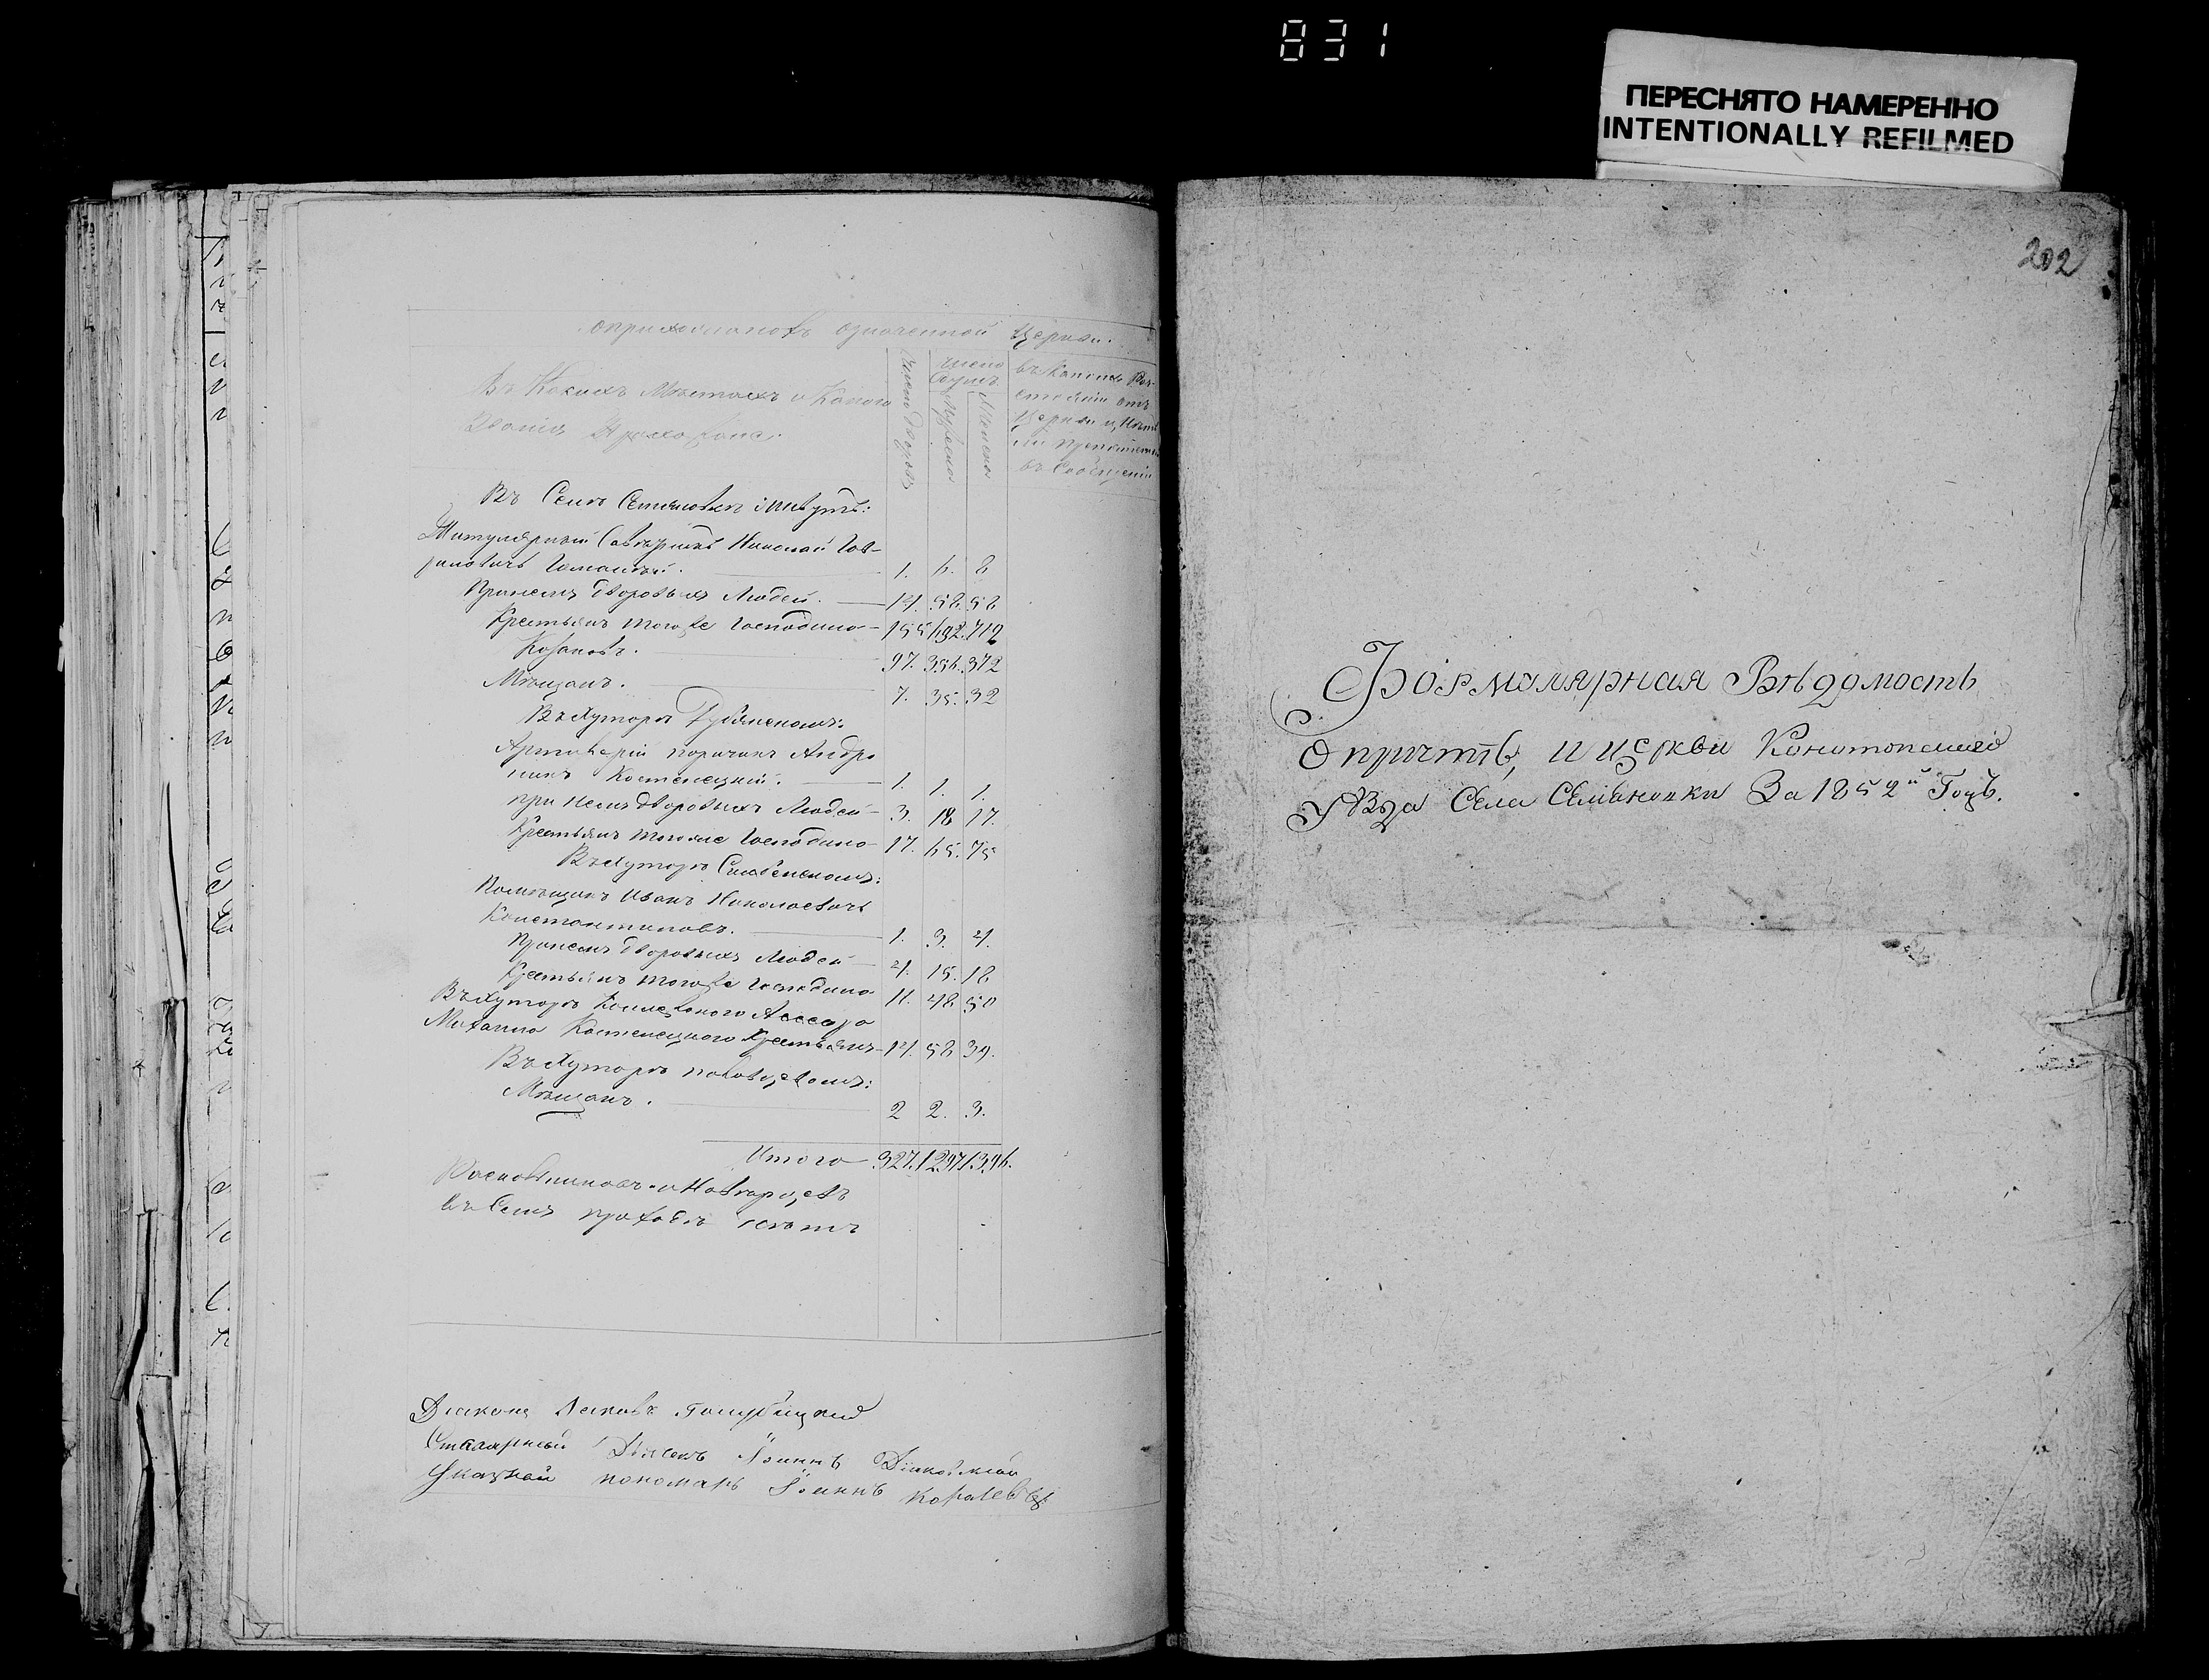 831
ПЕРЕСНЯТО НАМЕРЕННО
INTENTIONALLY REFILMED
о прихожанахъ означенной Церкви.
Въ Какихъ Местахъ и Какого
Звания Прихожане.
Число Дворовъ
Число
Душъ
Мужеска
Женска
въ Какомъ Раз-
стоянии отъ
Церкви и нетъ
ли препятств
въ сообщении
Въ Селе живутъ:
Титулярный Советникъ Николай Гав-
риловичъ 1. 6. 8
При немъ дворовыхъ Людей. 14. 58. 58
Крестьянъ того же Господина 155 692. 712
Козаковъ. 97. 356. 372
Мещанъ. 7. 35. 32
Въ Хуторе
поручикъ Андро
никъ Костенецкий. 1. 1. 1.
при немъ дворовыхъ Людей 3. 18 17.
Крестьянъ того же Господина 17. 65. 75
Въ Хуторе
Помещикъ Иванъ Николаевичъ
Константиновъ. 1. 3. 4.
При немъ дворовыхъ Людей 4. 15. 18
Крестьянъ того же Господина 11. 48 50
Въ Хуторе Коллежского Асессора
Михаила Костенецкого Крестьянъ 14. 58 39.
Въ Хуторе
Мещанъ. 2 2. 3.
Итого 327. 1297. 1396.
Раскольниковъ и
въ семъ приходе нетъ
Диаконъ Iаковъ Голубицкий
Стихарный Дьячекъ Iоаннъ
Указной пономарь Iоаннъ
202
Формулярная Вѣдомость
о причтѣ, и церкви Конотопского
Уѣзда Села Семьяновки За 1852й Годъ.